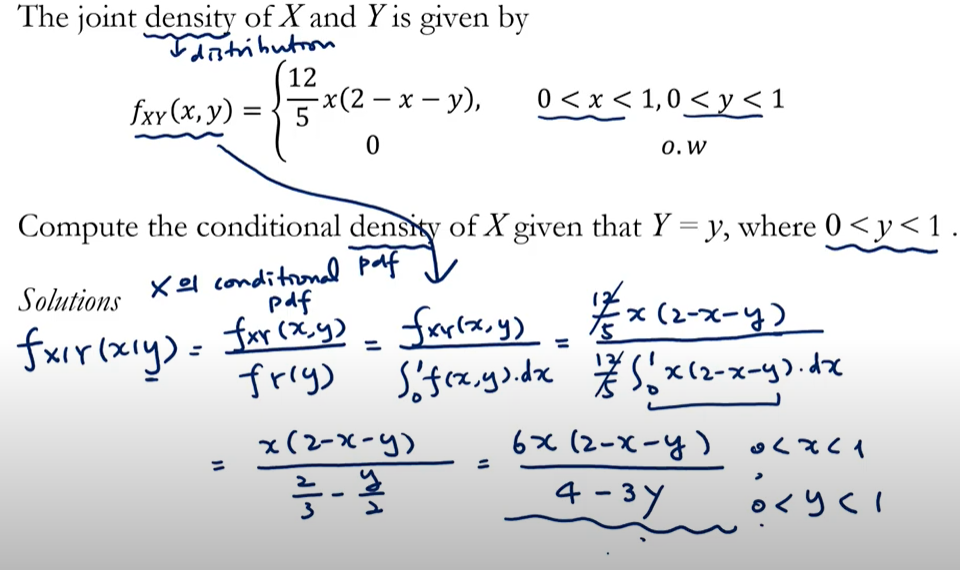 The joint density of X and Y is given by
↓ distribution
f_XY(x, y) = { 12/5 x(2 − x − y), 0 < x < 1, 0 < y < 1
0 o.w
Compute the conditional density of X given that Y = y, where 0 < y < 1 .
pdf
Solutions X의 conditional pdf
f_X|Y(x|y) = f_XY(x,y) / f_Y(y) = f_XY(x,y) / ∫₀¹ f(x,y)·dx = 12/5 x(2-x-y) / 12/5 ∫₀¹ x(2-x-y)·dx
= x(2-x-y) / (2/3 - y/2) = 6x(2-x-y) / (4-3y) 0<x<1, 0<y<1